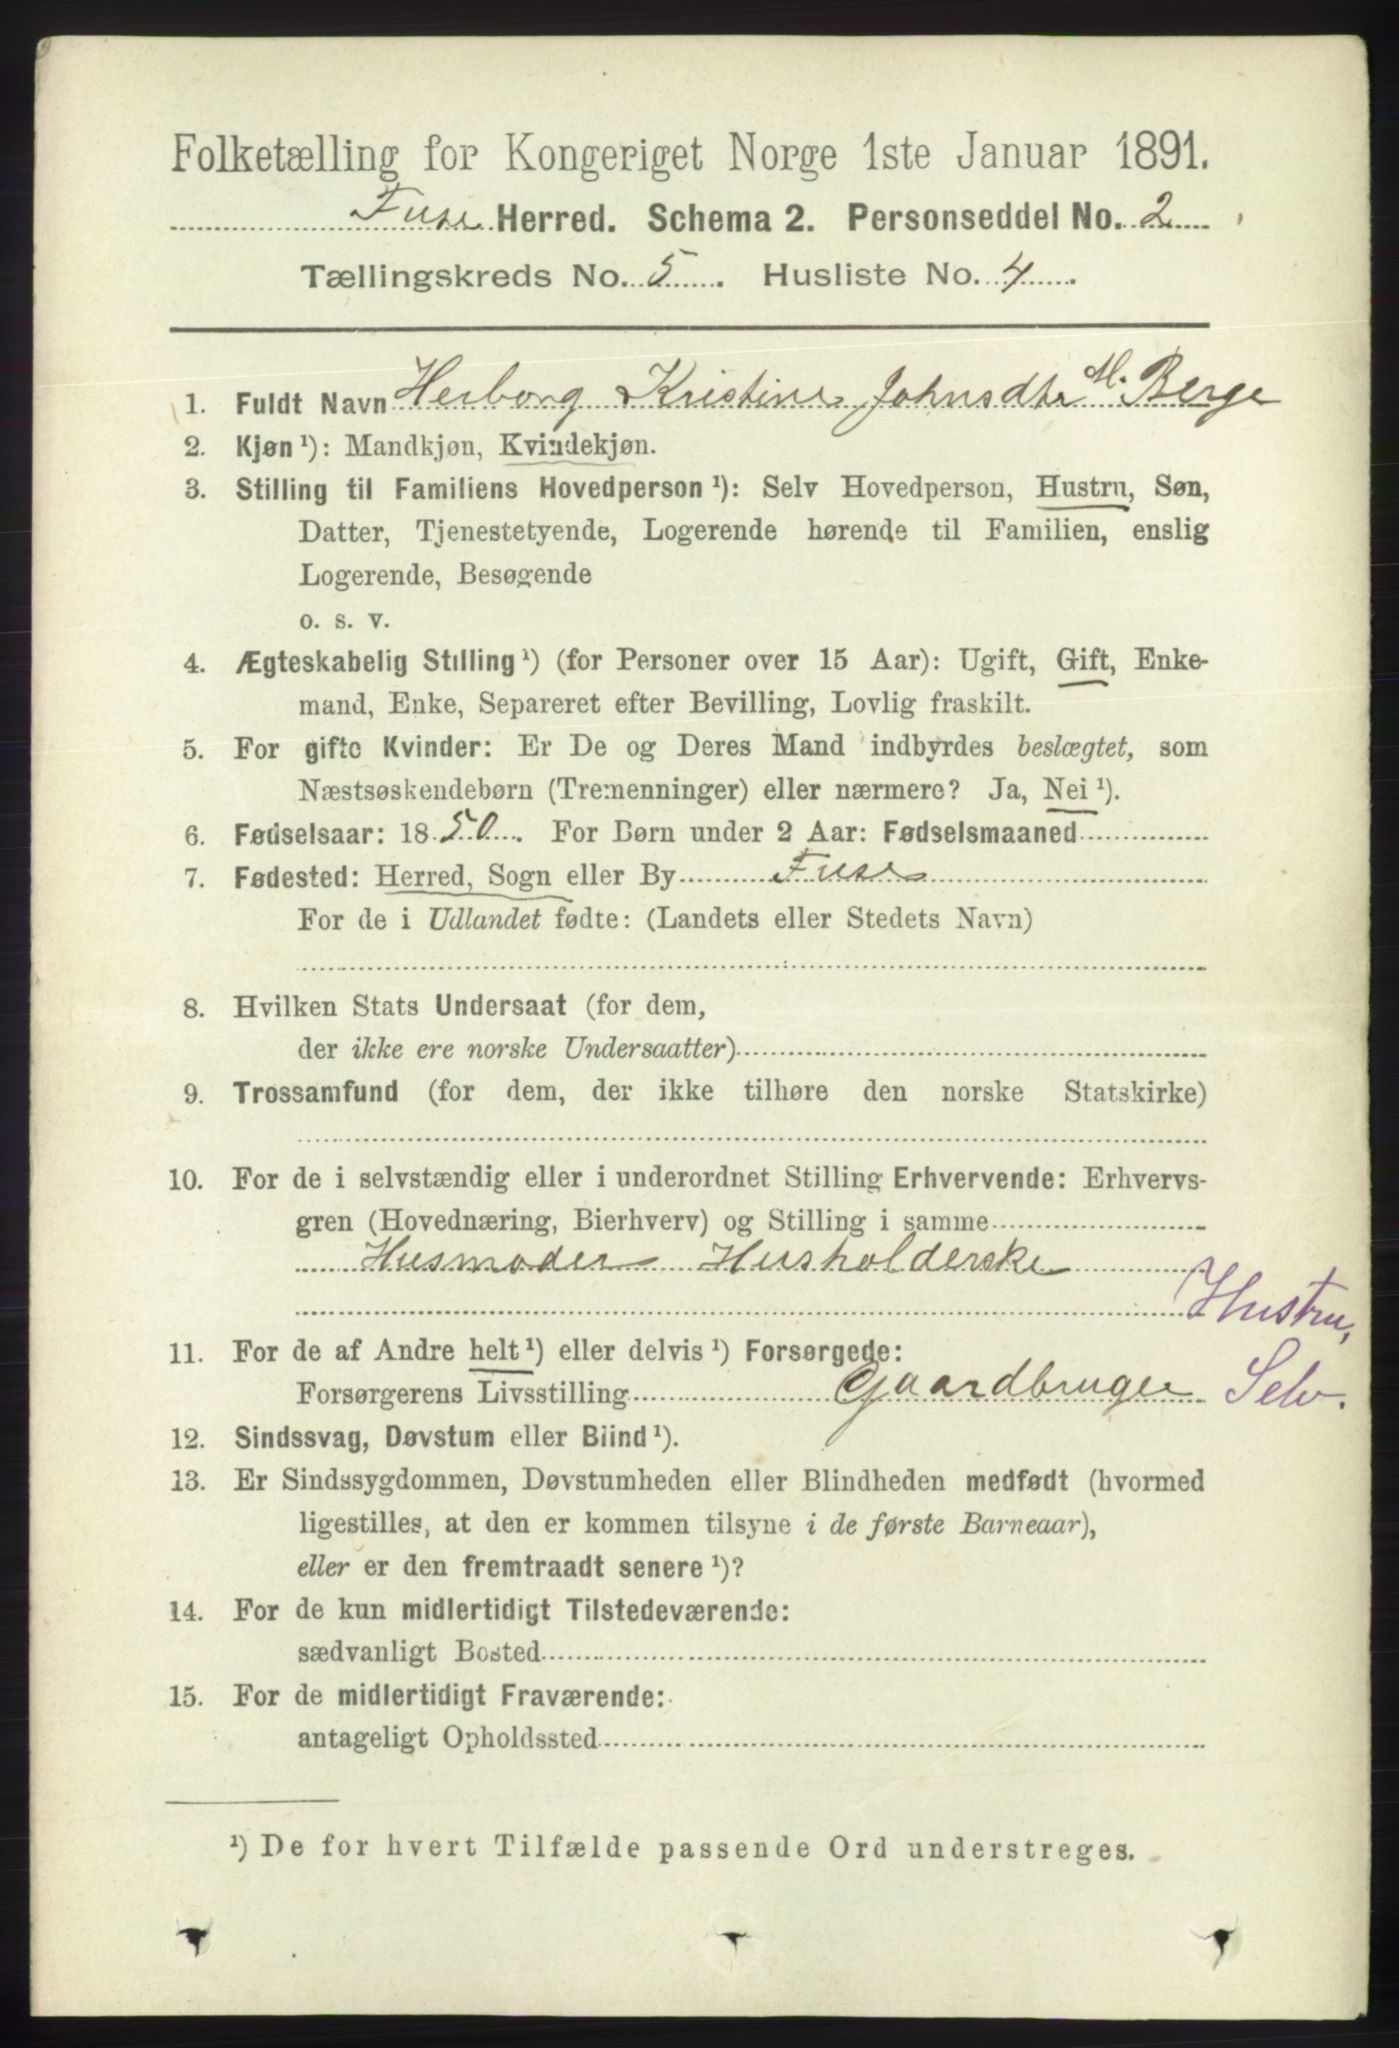 Folketælling for Kongeriget Norge 1ste Januar 1891.
Fuse Herred. Schema 2. Personseddel No. 2
Tællingskreds No. 5. Husliste No. 4.
1. Fuldt Navn Herborg Kristine Johnsdtr M. Berge
2. Kjøn ¹): Mandkjøn, Kvindekjøn.
3. Stilling til Familiens Hovedperson ¹): Selv Hovedperson, Hustru, Søn,
Datter, Tjenestetyende, Logerende hørende til Familien, enslig
Logerende, Besøgende
o. s. v.
4. Ægteskabelig Stilling ¹) (for Personer over 15 Aar): Ugift, Gift, Enke-
mand, Enke, Separeret efter Bevilling, Lovlig fraskilt.
5. For gifte Kvinder: Er De og Deres Mand indbyrdes beslægtet, som
Næstsøskendebørn (Tremenninger) eller nærmere? Ja, Nei ¹).
6. Fødselsaar: 1850. For Børn under 2 Aar: Fødselsmaaned
7. Fødested: Herred, Sogn eller By Fuse
For de i Udlandet fødte: (Landets eller Stedets Navn)
8. Hvilken Stats Undersaat (for dem,
der ikke ere norske Undersaatter)
9. Trossamfund (for dem, der ikke tilhøre den norske Statskirke)
10. For de i selvstændig eller i underordnet Stilling Erhvervende: Erhvervs-
gren (Hovednæring, Bierhverv) og Stilling i samme
Husmoder Husholderske
Hustru,
11. For de af Andre helt ¹) eller delvis ¹) Forsørgede:
Forsørgerens Livsstilling Gaardbruger Selv.
12. Sindssvag, Døvstum eller Blind ¹).
13. Er Sindssygdommen, Døvstumheden eller Blindheden medfødt (hvormed
ligestilles, at den er kommen tilsyne i de første Barneaar),
eller er den fremtraadt senere ¹)?
14. For de kun midlertidigt Tilstedeværende:
sædvanligt Bosted
15. For de midlertidigt Fraværende:
antageligt Opholdssted
¹) De for hvert Tilfælde passende Ord understreges.